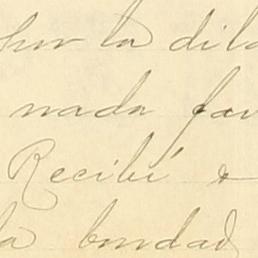 por la dila
nada fav
Recibí
la bondad